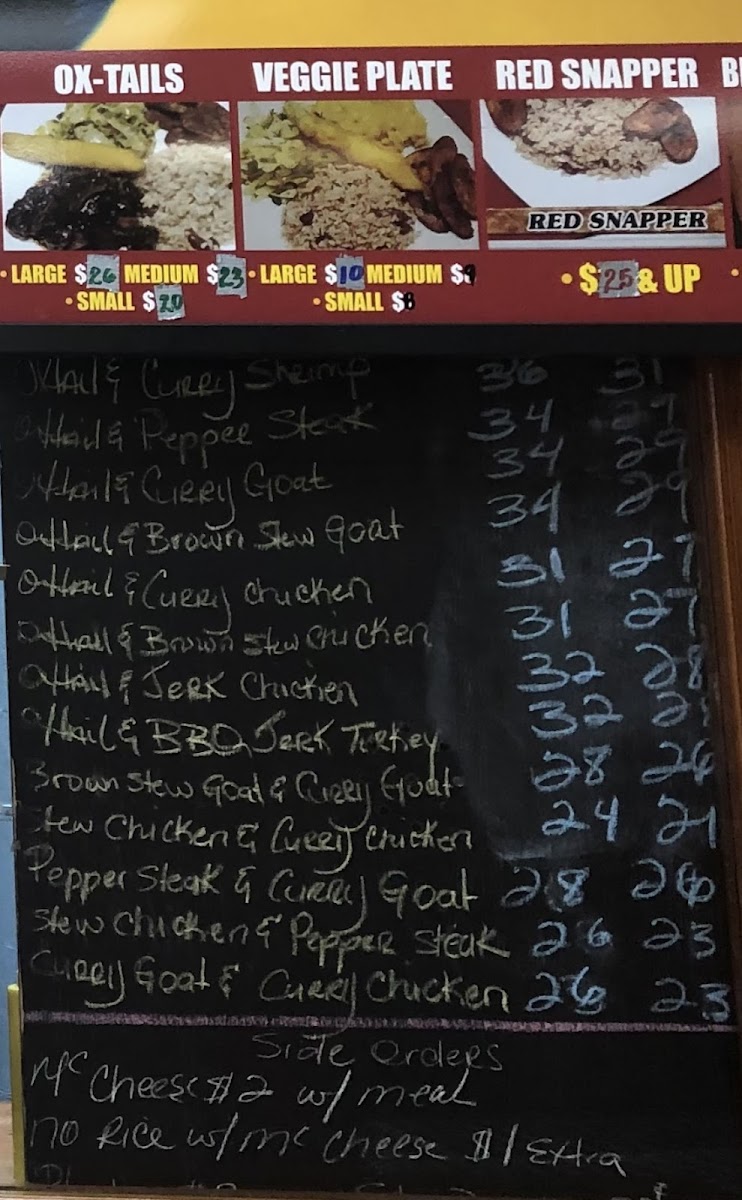 OX-TAILS
• LARGE $26 MEDIUM $23
• SMALL $20
VEGGIE PLATE
• LARGE $10 MEDIUM $9
• SMALL $8
RED SNAPPER
RED SNAPPER
• $25 & UP
Oxtail & Curry Shrimp 36 31
Oxtail & Pepper Steak 34 29
Oxtail & Curry Goat 34 29
Oxtail & Brown Stew Goat 34 29
Oxtail & Curry Chicken 31 27
Oxtail & Brown Stew Chicken 31 27
Oxtail & Jerk Chicken 32 28
Oxtail & BBQ Jerk Turkey 32
Brown Stew Goat & Curry Goat 28 26
Stew Chicken & Curry Chicken 24 21
Pepper Steak & Curry Goat 28 26
Stew Chicken & Pepper Steak 26 23
Curry Goat & Curry Chicken 26 23
Side Orders
Mc Cheese $2 w/ meal
No Rice w/ Mc Cheese $1 Extra